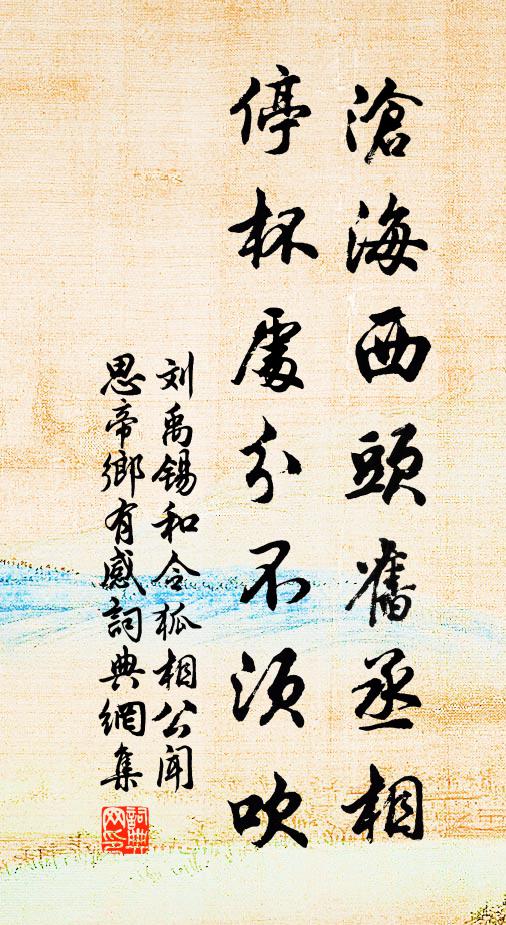 滄海西頭舊丞相
停杯處分不須吹
刘禹锡和令狐相公闻
思帝鄉有感詞典網集
詞典网